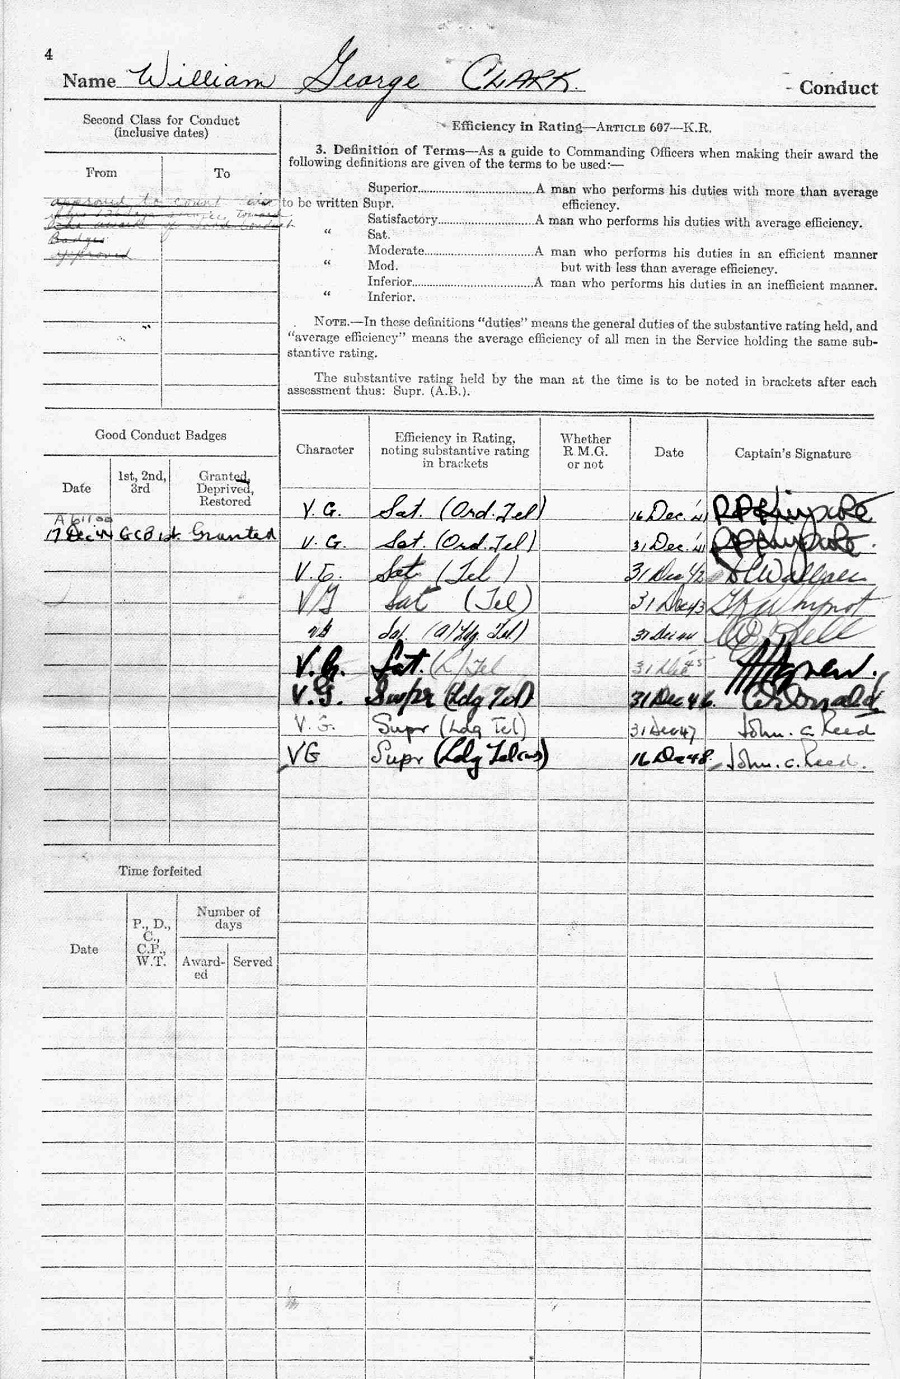 4
Name William George CLARK. Conduct
Second Class for Conduct
(inclusive dates)
From To
approved to count
service toward
the award of Good Conduct
Badges
approved
Efficiency in Rating—ARTICLE 607—K.R.
3. Definition of Terms—As a guide to Commanding Officers when making their award the
following definitions are given of the terms to be used:—
Superior..............................A man who performs his duties with more than average
to be written Supr. efficiency.
Satisfactory........................A man who performs his duties with average efficiency.
“ Sat.
Moderate...........................A man who performs his duties in an efficient manner
“ Mod. but with less than average efficiency.
Inferior..............................A man who performs his duties in an inefficient manner.
“ Inferior.
NOTE.—In these definitions “duties” means the general duties of the substantive rating held, and
“average efficiency” means the average efficiency of all men in the Service holding the same sub-
stantive rating.
The substantive rating held by the man at the time is to be noted in brackets after each
assessment thus: Supr. (A.B.).
Good Conduct Badges
Date 1st, 2nd, 3rd Granted, Deprived, Restored
17 Dec GCB 1st. Granted
Character Efficiency in Rating, noting substantive rating in brackets Whether R.M.G. or not Date Captain's Signature
V.G. Sat. (Ord. Tel) 16 Dec. '41
V.G. Sat. (Ord. Tel) 31 Dec. '41
V.G. Sat (Tel) 31 Dec 42 Wallace
VG Sat (Tel) 31 Dec 43 Whynot
VG Sat. (A/Ldg. Tel) 31 Dec 44
V.G. Sat. (L) Tel 31 Dec 45
V.G. Supr (Ldg Tel) 31 Dec 46.
V.G. Supr (Ldg Tel) 31 Dec 47 John. C. Reed
VG Supr (Ldg Tel) 16 Dec 48. John. C. Reed.
Time forfeited
Date P., D., C., C.P., W.T. Number of days
Award-ed Served